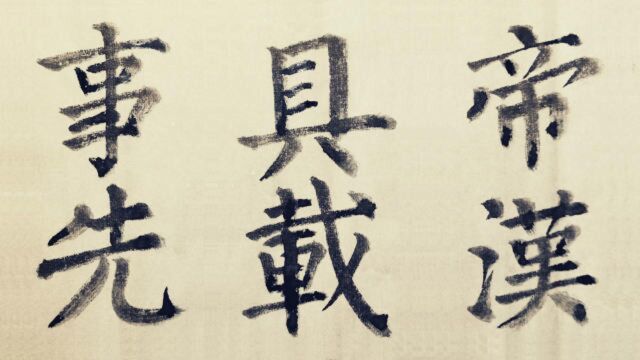 帝漢
具載
事先